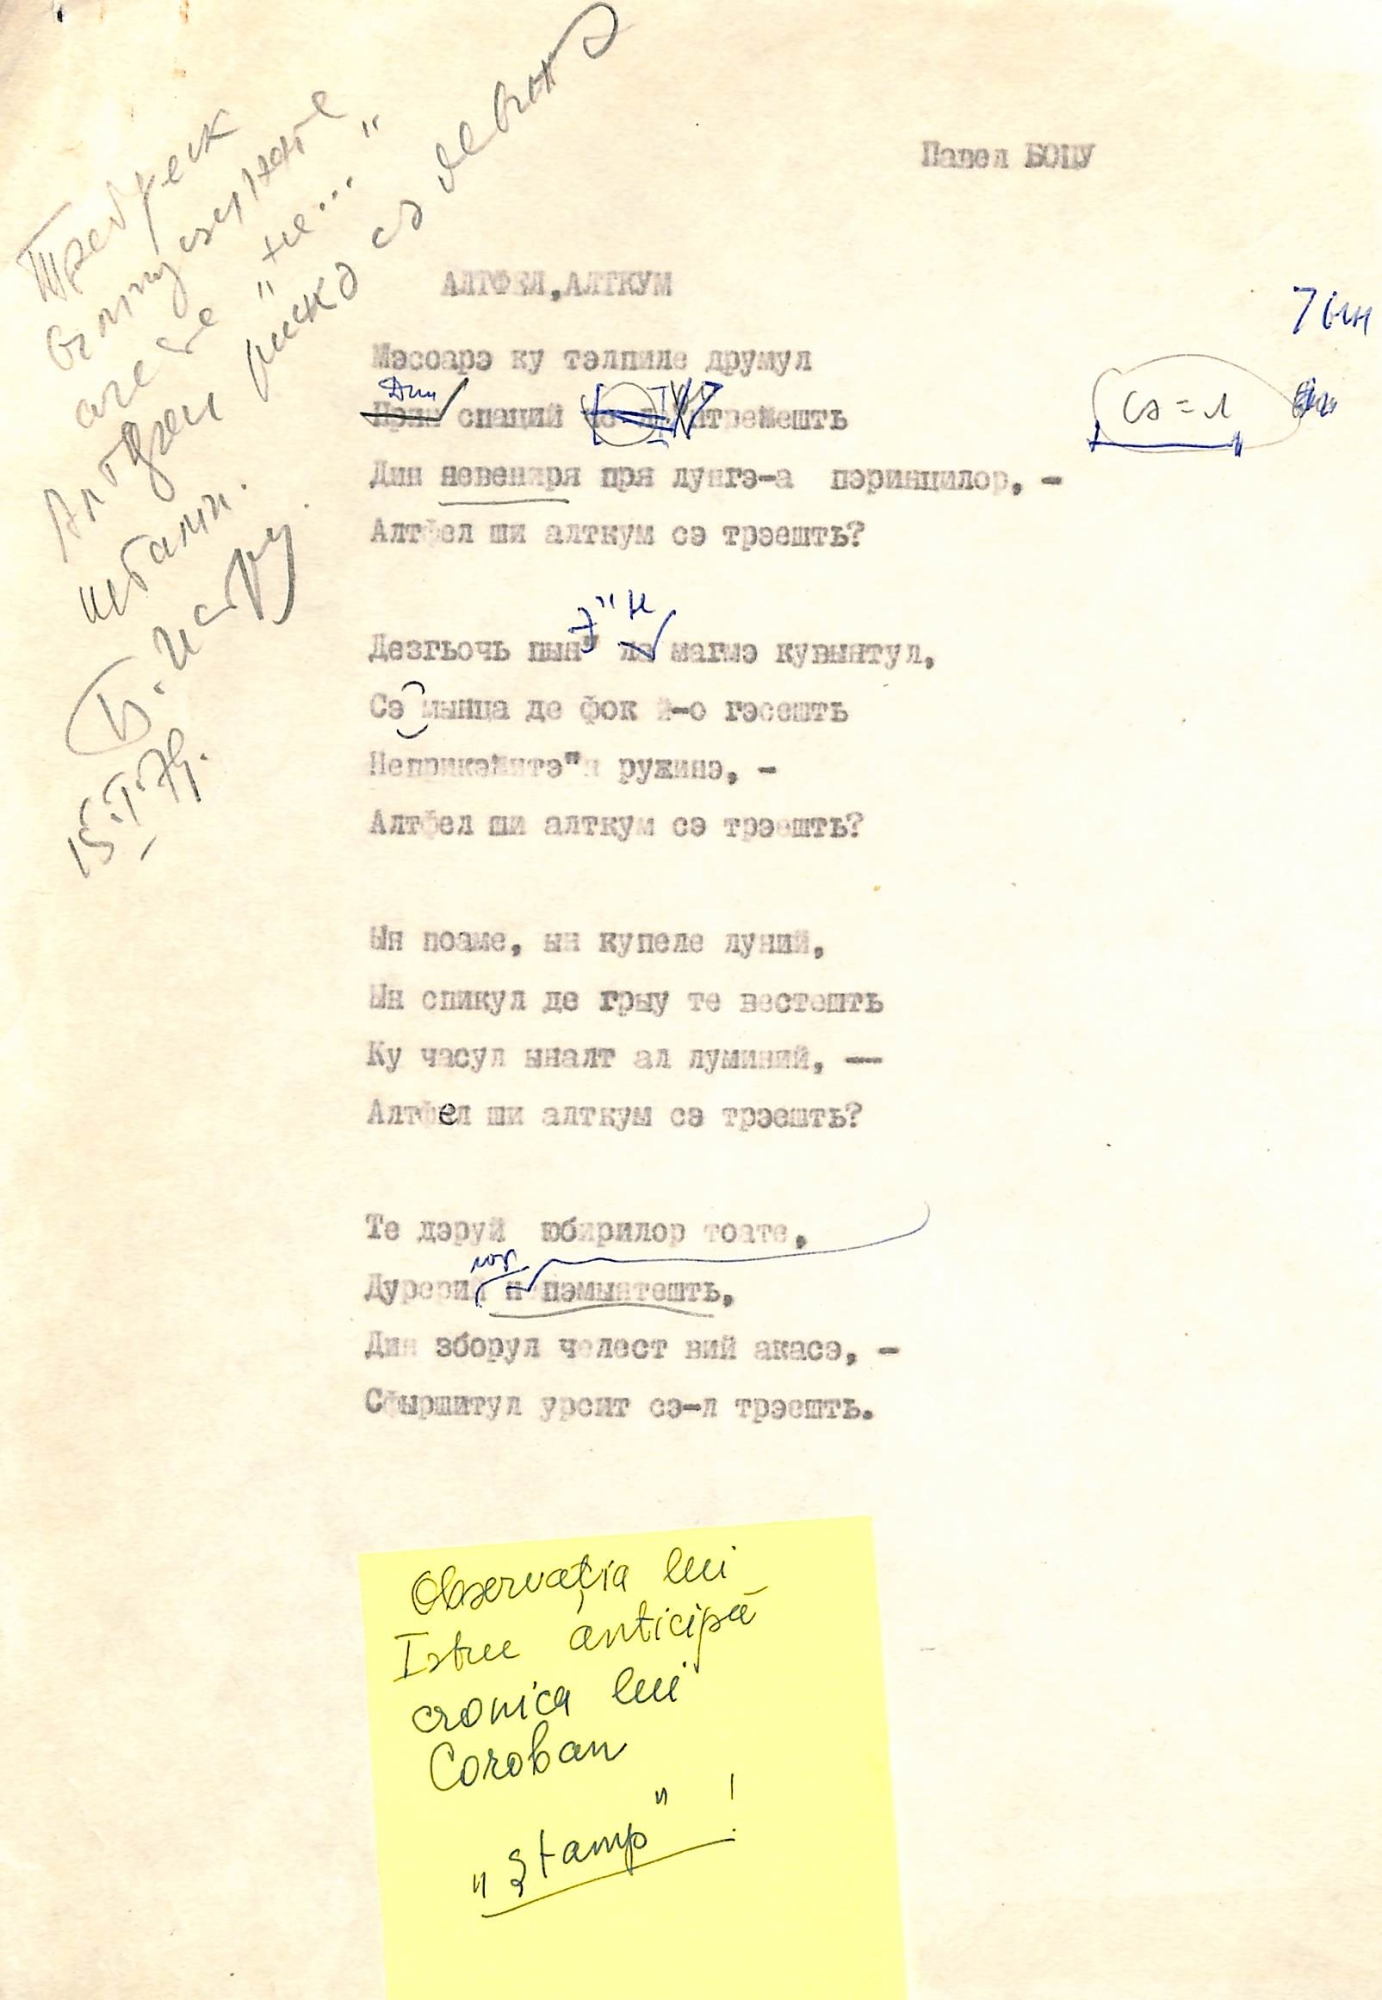 Требуеск
ынмулците
ачесте "не..."
Алтфел рискэ сэ девинэ
штамп.
Б. Истру
15.I.79.
Павел БОЦУ
АЛТФЕЛ,АЛТКУМ
7 ын
Мэсоарэ ку тэлпиле друмул
Дин
Прин спаций ынтрежешть
сэ=л
Дин невениря пря лунгэ-а пэринцилор, -
Алтфел ши алткум сэ трэешть?
э"н
Дезгьочь пын" ла магмэ кувынтул,
Сэ мынца де фок й-о гэсешть
Неприкэнитэ"н ружинэ, -
Алтфел ши алткум сэ трэешть?
Ын поаме, ын купеле луний,
Ын спикул де грыу те вестешть
Ку часул ыналт ал луминий, —
Алтфел ши алткум сэ трэешть?
Те дэруй юбирилор тоате,
лор
Дурерий не пэмынтешть,
Дин зборул челест вий акасэ, -
Сфыршитул урсит сэ-л трэешть.
Observația lui
Istru anticipă
cronica lui
Coroban
"Ștamp" !